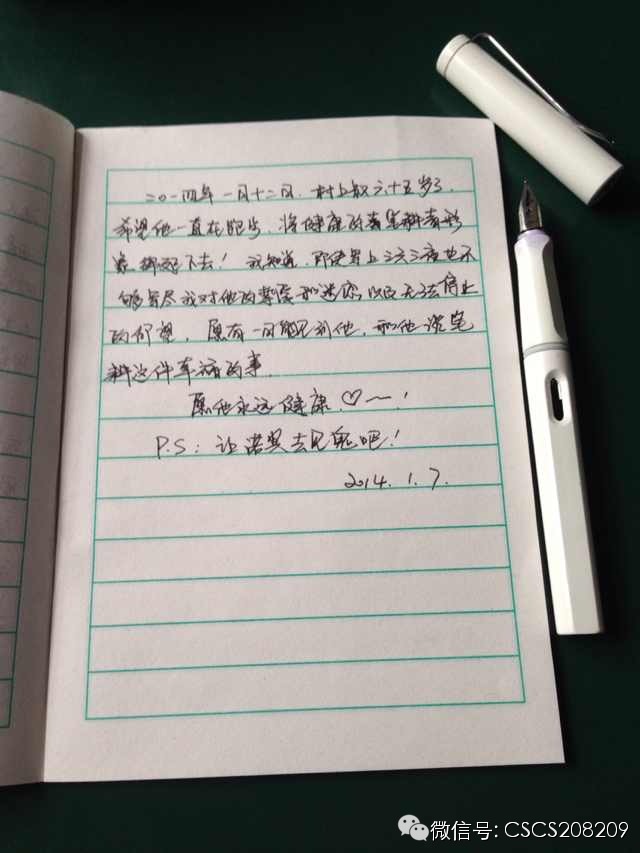 二〇一四年一月十二日，村上叔六十五岁了，
希望他一直在跑步，将健康的青笔料青形
象绑起下去！我知道，即使写上三天三夜也不
够写尽我对他的尊崇和迷恋以及无法停止
的仰望，愿有一日能见到他，和他谈笔
料这件车诸的事。
愿他永远健康♡～！
P.S：让诺奖去见鬼吧！
2014.1.7.
微信号: CSCS208209